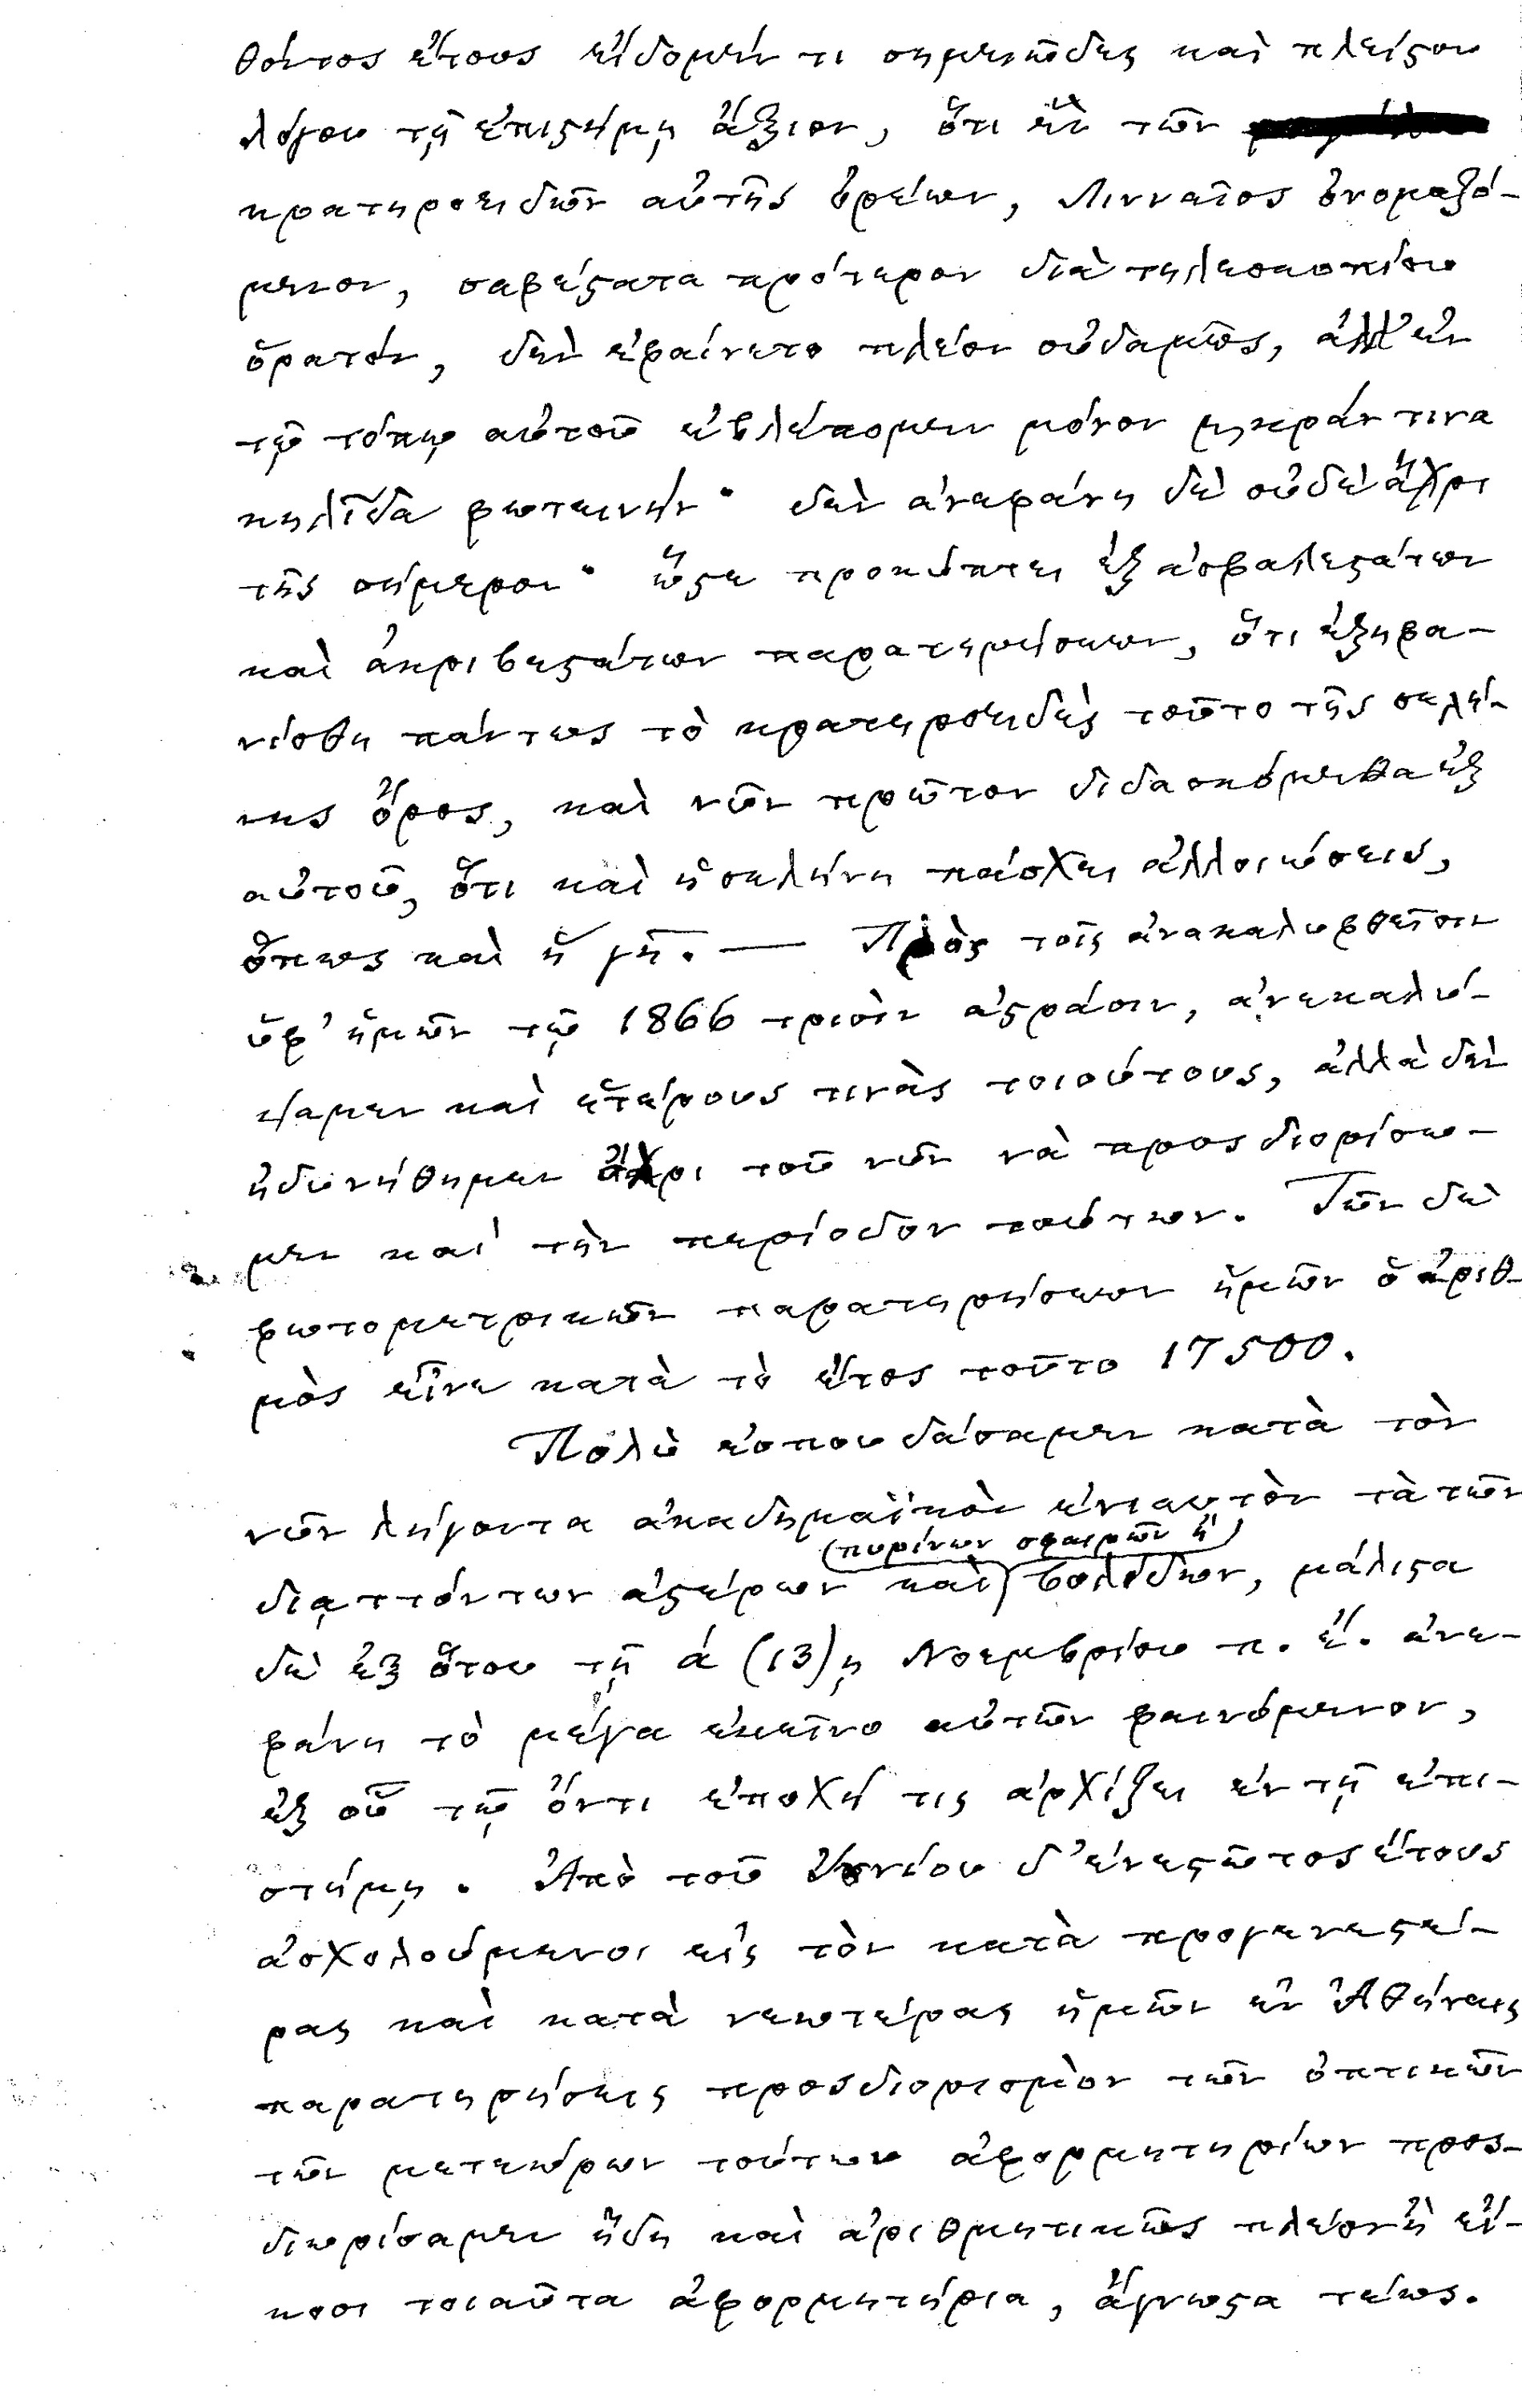 θόντος ἔτους εἴδομέν τι σημειῶδες καὶ πλείςου
λόγου τῇ ἐπιςήμῃ ἄξιον, ὅτι ἓν τῶν
κρατηροειδῶν αὐτῆς ὀρέων, Λινναῖος ὀνομαζό-
μενον, σαφέςατα πρότερον διὰ τηλεσκοπίου
ὁρατόν, δὲν ἐφαίνετο πλέον οὐδαμῶς, ἀλλ' ἐν
τῷ τόπῳ αὐτοῦ ἐβλέπομεν μόνον μικράν τινα
κηλῖδα φωτεινήν· δὲν ἀνεφάνη δὲ οὐδὲ ἄχρι
τῆς σήμερον· ὥςε προκύπτει ἐξ ἀσφαλεςάτων
καὶ ἀκριβεςάτων παρατηρήσεων, ὅτι ἐξηφα-
νίσθη πάντως τὸ κρατηροειδὲς τοῦτο τῆς σελή-
νης ὄρος, καὶ νῦν πρῶτον διδασκόμεθα ἐξ
αὐτοῦ, ὅτι καὶ ἡ σελήνη πάσχει ἀλλοιώσεις,
ὅπως καὶ ἡ γῆ. — Πρὸς τοῖς ἀνακαλυφθεῖσιν
ὑφ' ἡμῶν τῷ 1866 τρισὶν ἀςράσιν, ἀνεκαλύ-
ψαμεν καὶ ἑτέρους τινὰς τοιούτους, ἀλλὰ δὲν
ἠδυνήθημεν ἄχρι τοῦ νῦν νὰ προσδιορίσω-
μεν καὶ τὴν περίοδον τούτων. Τῶν δὲ
φωτομετρικῶν παρατηρήσεων ἡμῶν ὁ ἀριθ-
μὸς εἶνε κατὰ τὸ ἔτος τοῦτο 17500.
Πολὺ ἐσπουδάσαμεν κατὰ τὸν
νῦν λήγοντα ἀκαδημαϊκὸν ἐνιαυτὸν τὰ τῶν
(πυρίνων σφαιρῶν ἢ)
διᾳττόντων ἀςέρων καὶ βολίδων, μάλιςα
δὲ ἐξ ὅτου τῇ ά (13)ῃ Νοεμβρίου π. ἔ. ἀνε-
φάνη τὸ μέγα ἐκεῖνο αὐτῶν φαινόμενον,
ἐξ οὗ τῷ ὄντι ἐποχή τις ἀρχίζει ἐν τῇ ἐπι-
στήμῃ. Ἀπὸ τοῦ Ἰουνίου δ' ἐνεςῶτος ἔτους
ἀσχολούμενοι εἰς τὸν κατὰ προγενεςέ-
ρας καὶ κατὰ νεωτέρας ἡμῶν ἐν Ἀθήναις
παρατηρήσεις προσδιορισμὸν τῶν ὀπτικῶν
τῶν μετεώρων τούτων ἀφορμητηρίων προσ-
διωρίσαμεν ἤδη καὶ ἀριθμητικῶς πλέον ἢ εἴ-
κοσι τοιαῦτα ἀφορμητήρια, ἄγνωςα τέως.